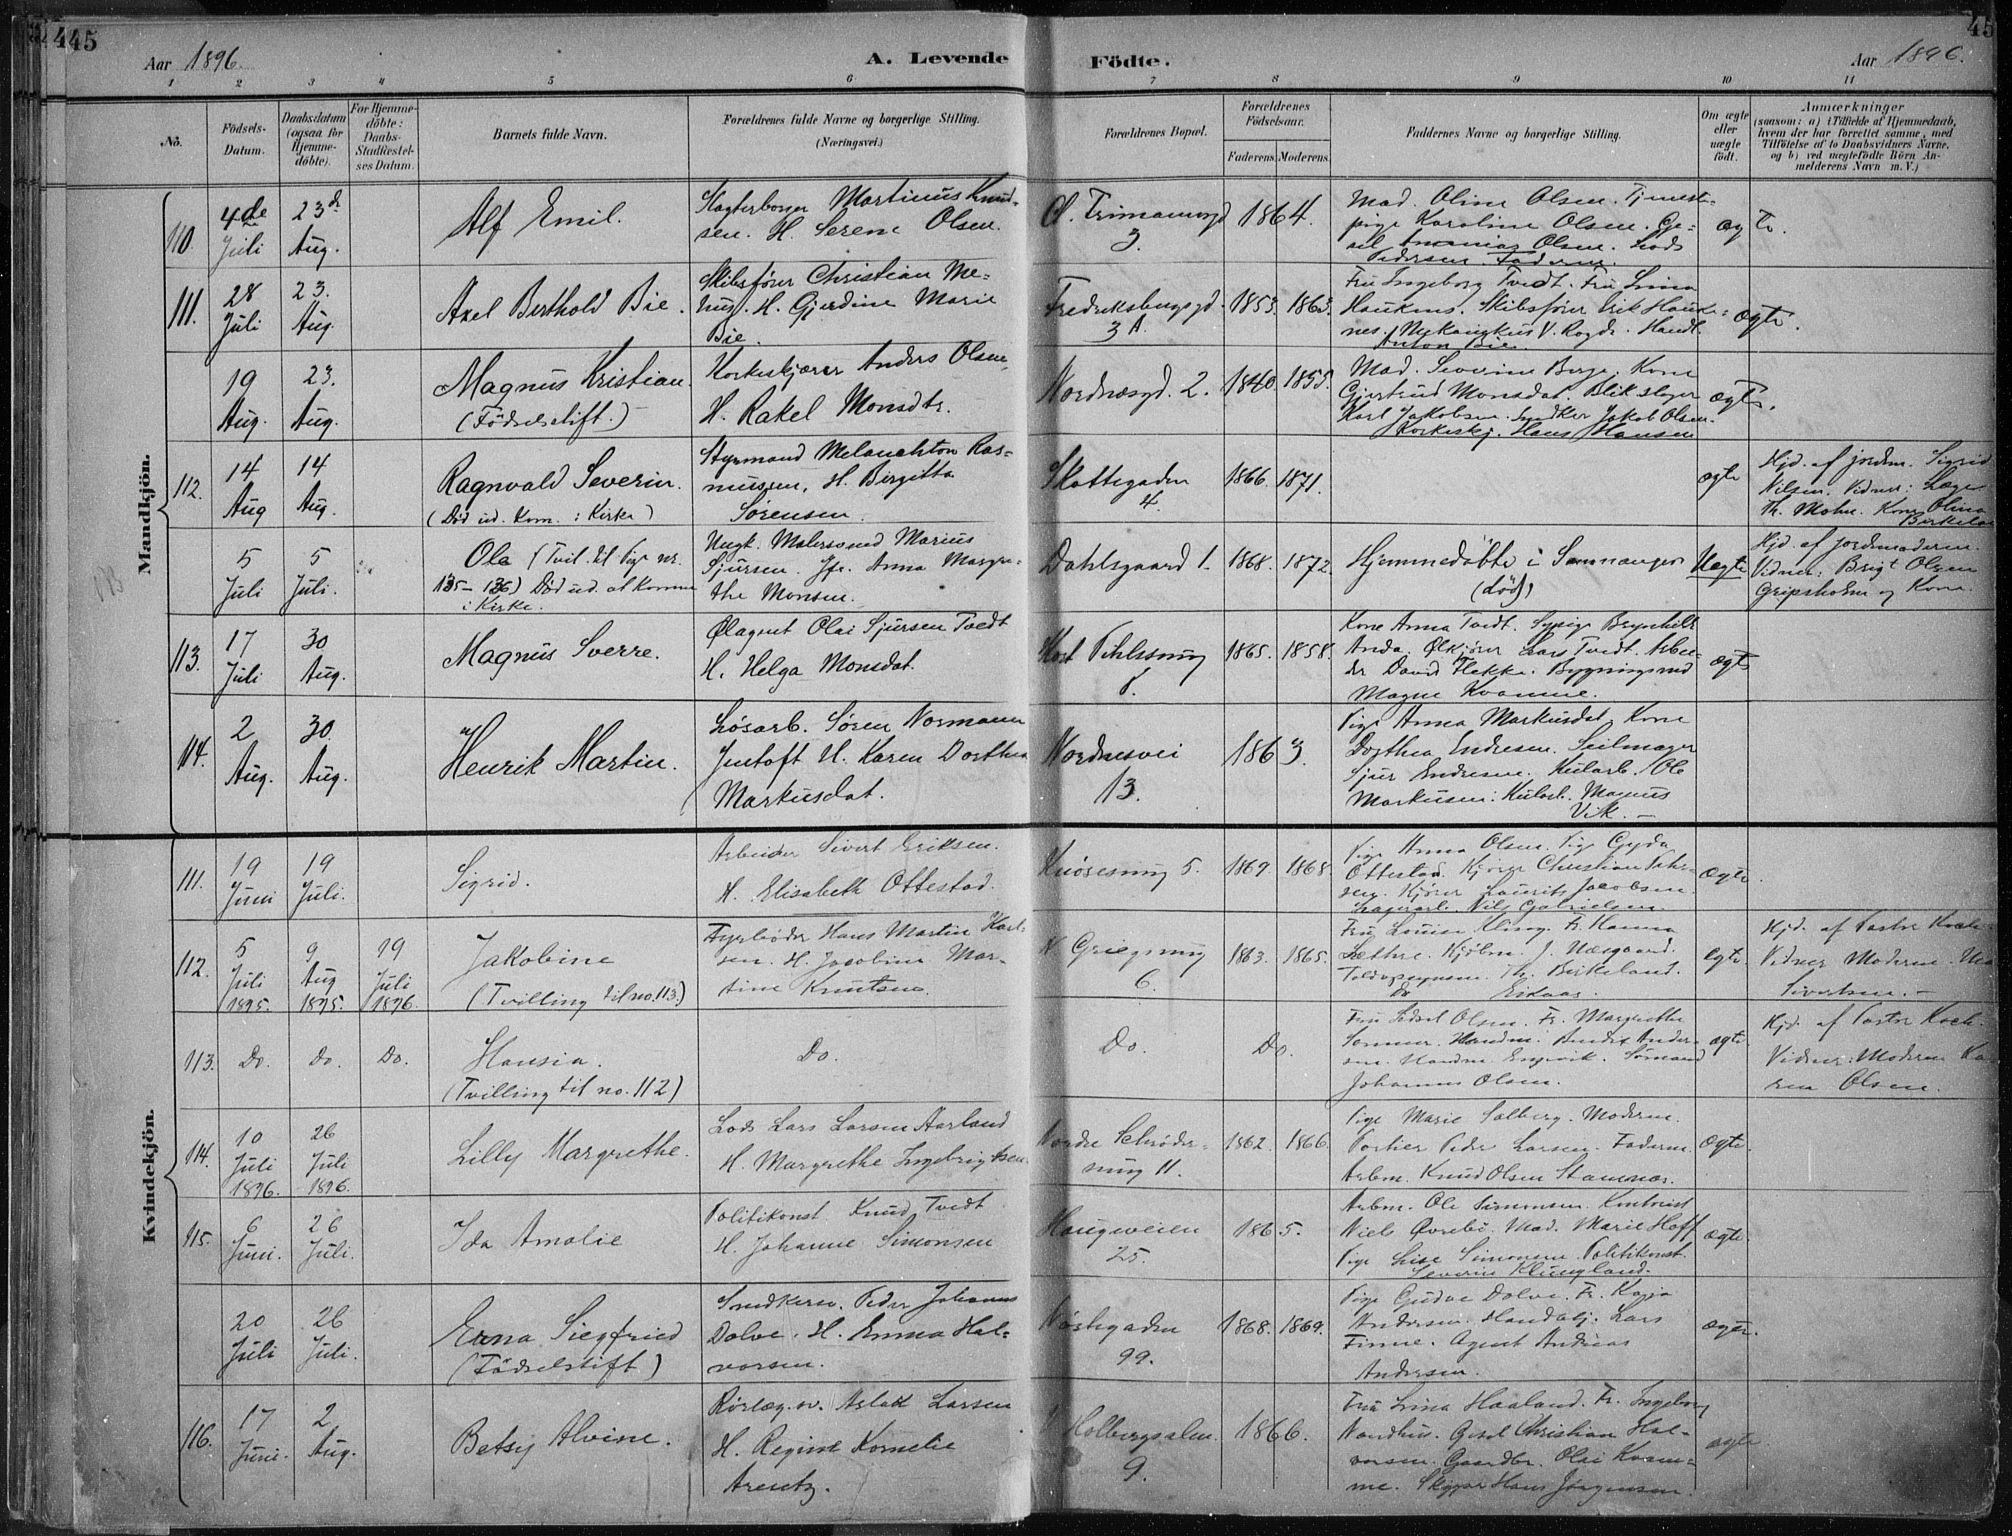 445
45
Aar 1896.
A. Levende
Födte.
Aar 1896.
1 2 3 4 5 6 7 8 9 10 11
No.
Födsels-
Datum.
Daabsdatum
(ogsaa for
Hjemme-
döbte).
For Hjemme-
döbte:
Daabs-
Stadfæstel-
ses Datum.
Barnets fulde Navn.
Forældrenes fulde Navne og borgerlige Stilling.
(Næringsvei.)
Forældrenes Bopæl.
Forældrenes
Födselsaar.
Faderens. Moderens.
Faddernes Navne og borgerlige Stilling.
Om ægte
eller
uægte
født.
Anmærkninger
(saasom: a) i Tilfælde af Hjemmedaab,
hvem der har forrettet samme, med
Tilföielse af to Daabsvidners Navne,
og b) ved uægtefödte Börn An-
melderens Navn m. V.)
Mandkjön.
110.
4de
Juli
23de
Aug.
Alf Emil.
Martinus Knud-
sen. H. Serene Olsen.
3.
1864.
Mad. Oline Olsen. Tjenest-
pige Karoline Olsen. Ge-
sel Ananias Olsen. Lods
Pedersen. Faderen.
ægte.
111.
28
Juli
23.
Aug.
Axel Berthold Bie.
Skibsfører Christian Me-
H. Gjerdine Marie
Bie.
Fredriksbergsgd.
3 A.
1853. 1863.
Fru Ingeborg Tvedt. Fru Lina
Haukenes. Skibsfører Erik Hauke-
nes. V. Handl.
Anton Bie.
ægte.
19
Aug.
23.
Aug.
Magnus Kristian.
(Födselsstift.)
Korkeskjærer Anders Olsen,
H. Rakel Monsdtr.
Nordnæsgd. 2.
1840. 1855.
Mad. Severine Berge. Kone
Gjertrud Monsdat. Blikslager
Karl Jakobsen. Snedker Jakob Olsen.
Korkeskj. Hans Hansen
ægte.
112.
14
Aug
14
Aug.
Ragnvald Severin.
(Död ud. Kom. i Kirke)
Styrmand Melanchton Ras-
mussen, H. Birgitta
Sörensen.
Skottegaden
4.
1866. 1871.
ægte
Hjd. af jordm. Sigrid
Nilsen. Vidner: Læge
Th. Mohn. Kone Olina
Birkeland
5
Juli
5
Juli.
Ole (Tvil. til Pige nr.
135-136) Död ud. at komme
i Kirke.
Ungk. Malersvend Marius
Sjursen. Jfr. Anna Margre-
the Monsen.
Dahlsgaard 1.
1868. 1872.
Hjemmedöbte i Sammanger
(död)
Uægte
Hjd. af jordemoderen.
Vidner: Brigt Olsen
Gripsholm og Kone.
113.
17
Juli
30
Aug.
Magnus Sverre.
Ølagent Olai Sjursen Tvedt
H. Helga Monsdat.
1865. 1858.
Kone Anna Tvedt. Sypige Brynhild
Anda. Ølkjører Lars Tvedt. Arbei-
der David Flekke. Bygningssnd
Magne Kvamme.
ægte
114.
2
Aug.
30
Aug.
Henrik Martin.
Løsarb. Søren Normann
Jentoft H. Karen Dorthea
Markusdat.
Nordnesvei
13.
1863.
Pige Anna Markusdat. Kone
Dorthea Endresen. Seilmager
Sjur Endresen. Kularb. Ole
Markusen. Kularb. Magnus
Vik.
Kvindekjön.
111.
19
Juni
19
Juli.
Sigrid.
Arbeider Sivert Eriksen.
H. Elisabeth Ottestad.
Knøsesmug 5.
1869. 1868.
Pige Anna Olsen. Pige Gyda
Ottestad. Kjører Christian
Kjører Laurits Jacobsen
Lagerarb. Nils Gabrielsen.
ægte.
112.
5
Juli
1895.
9
Aug
1895.
19
Juli
1896.
Jakobine
(Tvilling til no. 113.)
Fyrbøder Hans Martin Karl-
sen. H. Jacobine Mar-
tine Knutsen.
N Griegsmug
6.
1863. 1865.
Fru Louise Fr. Hanna
Lathre. Kjøbm. J. Næsgaard.
Toldopsynsm. Th. Birkeland.
Do Eikaas.
ægte.
Hjd. af Pastor Koch-
Vidner Moderen.
Sivertsen. -
113.
Do. Do. Do.
Hansia.
(Tvilling til no. 112)
Do.
Do.
Do.
Fru Sidsel Olsen. Fr. Margrethe
Sommer. Handm. Anders Ander-
sen. Handm. Engevik. Sømand
Johannes Olsen.
ægte.
Hjd. af Pastor Koch.
Vidner: Moderen Ka-
ren Olsen.
114.
10
Juli
1896.
26
Juli
1896.
Lilly Margrethe.
Lods Lars Larsen Aarland
H. Margrethe Ingebrigtsen.
Nordre Schrøder-
smug 11.
1862. 1866.
Pige Marie Solberg. Moderen.
Portier Peder Larsen. Faderen.
Arbm. Knud Olsen Stamnæs.
ægte.
115.
6
Juni.
26
Juli.
Ida Amalie
Politikonst. Knud Tvedt
H. Johanne Simonsen
Haugeveien
25.
1865.
Arbm. Ole Simonsen. Kontorist
Niels Øvrebø. Mad. Marie Hoff
Pige Lise Simonsen. Politikonst.
Severin Klungland.
ægte.
20
Juli
26
Juli.
Erna Siegfried
(Födselsstift)
Snedkersv. Peder Johannes
Dolve. H. Emma Hal-
vorsen.
Nöstegaden
99.
1868. 1869.
Pige Gudve Dolve. Fr. Kaja
Andersen. Handelsbj. Lars
Finne. Agent Andreas
Andersen.
ægte.
116.
17
Juni.
2
Aug.
Betsy Alvine.
Rørlæg.sv. Aslak Larsen
H. Regine Kornelie
Arentz.
Holbergsalm.
9.
1866.
Fru Lina Haaland. Fr. Ingeborg
Nordhus. Gesel Christian Hal-
vorsen. Gaardbr. Olai Kvam-
me. Skipper Hans Jörgensen.
ægte